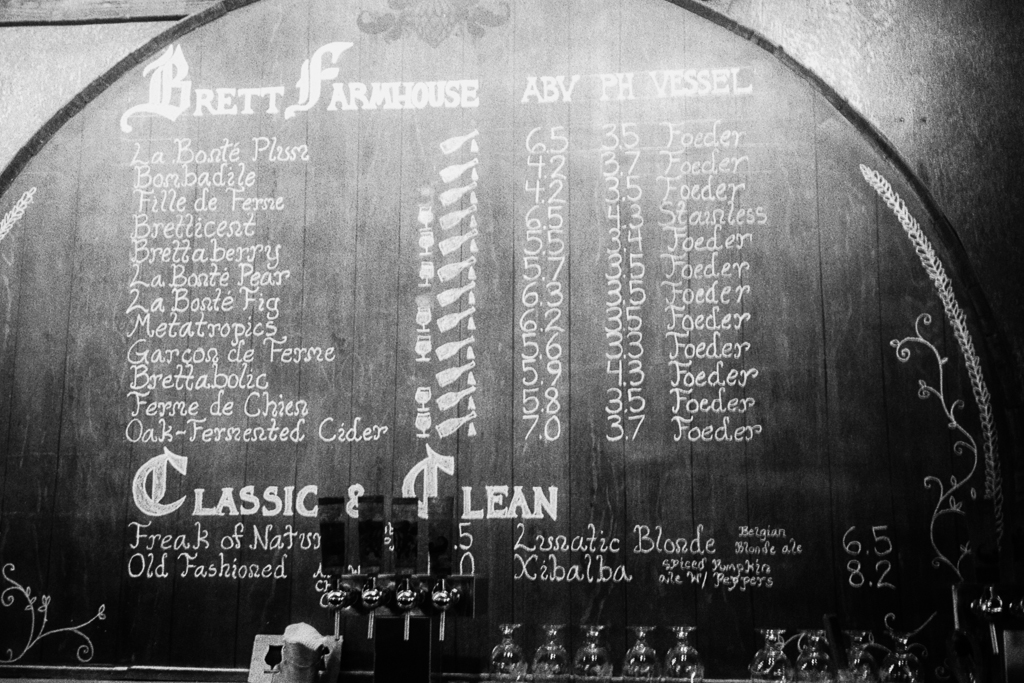 Brett Farmhouse ABV PH Vessel
La Bonté Plum 6.5 3.5 Foeder
Bombadile 4.2 3.7 Foeder
Fille de Ferme 4.2 3.5 Foeder
Bretticent 6.5 4.3 Stainless
Brettaberry 5.5 3.4 Foeder
La Bonté Pear 5.7 3.5 Foeder
La Bonté Fig 6.3 3.5 Foeder
Metatropics 6.2 3.5 Foeder
Garçon de Ferme 5.6 3.3 Foeder
Brettabolic 5.9 4.3 Foeder
Ferme de Chien 5.8 3.5 Foeder
Oak-Fermented Cider 7.0 3.7 Foeder
Classic & Clean
Freak of Natur .5 Lunatic Blonde Belgian Blonde ale 6.5
Old Fashioned 0 Xibalba spiced Pumpkin ale w/ Peppers 8.2